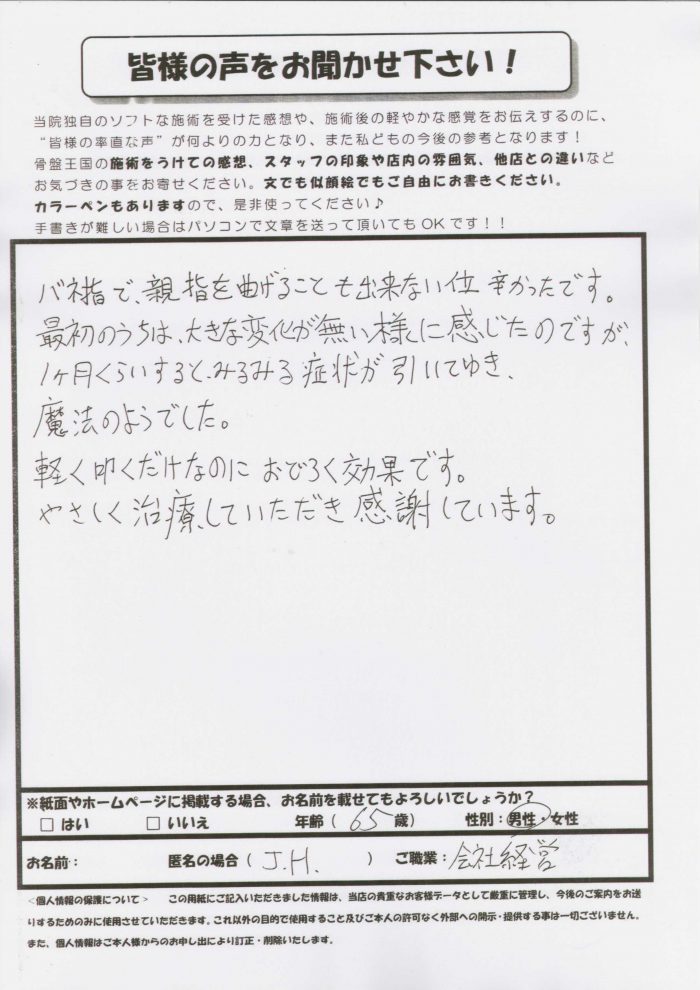 皆様の声をお聞かせ下さい！
当院独自のソフトな施術を受けた感想や、施術後の軽やかな感覚をお伝えするのに、
“皆様の率直な声”が何よりの力となり、また私どもの今後の参考となります！
骨盤王国の施術をうけての感想、スタッフの印象や店内の雰囲気、他店との違いなど
お気づきの事をお寄せください。文でも似顔絵でもご自由にお書きください。
カラーペンもありますので、是非使ってください♪
手書きが難しい場合はパソコンで文章を送って頂いてもOKです！！
バネ指で、親指を曲げることも出来ない位 辛かったです。
最初のうちは、大きな変化が無い様に感じたのですが、
1ヶ月くらいすると、みるみる症状が引いてゆき、
魔法のようでした。
軽く叩くだけなのにおどろく効果です。
やさしく治療していただき感謝しています。
※紙面やホームページに掲載する場合、お名前を載せてもよろしいでしょうか？
□ はい □ いいえ 年齢（ 65 歳） 性別：男性・女性
お名前： 匿名の場合（ J.H. ） ご職業：会社経営
<個人情報の保護について> この用紙にご記入いただきました情報は、当店の貴重なお客様データとして厳重に管理し、今後のご案内をお送
りするためのみに使用させていただきます。これ以外の目的で使用すること及びご本人の許可なく外部への開示・提供する事は一切ございません。
また、個人情報はご本人様からのお申し出により訂正・削除いたします。